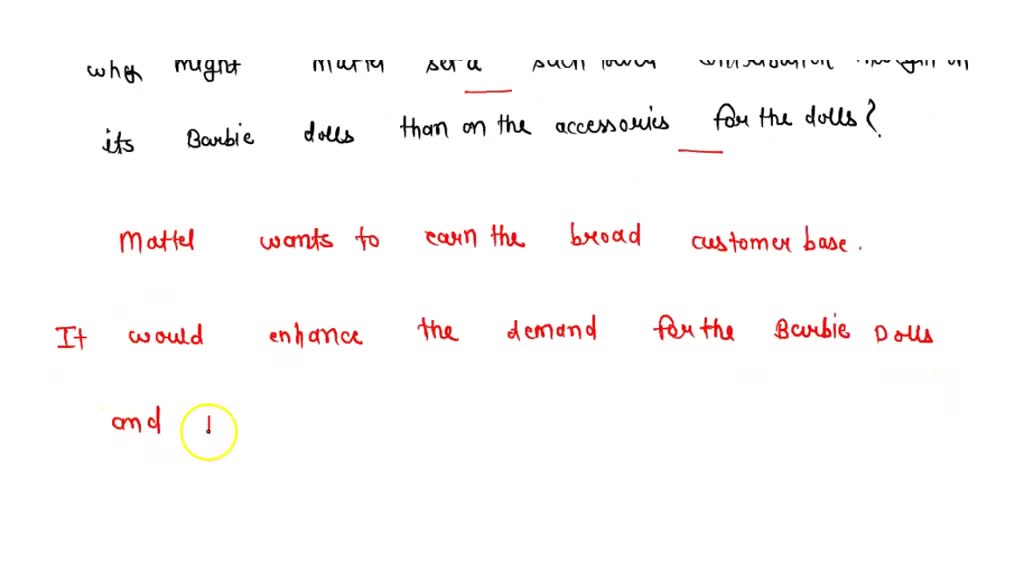 why might Mattel set a such lower contribution margin on
its Barbie dolls than on the accessories for the dolls?
Mattel wants to earn the broad customer base.
It would enhance the demand for the Barbie Dolls
and